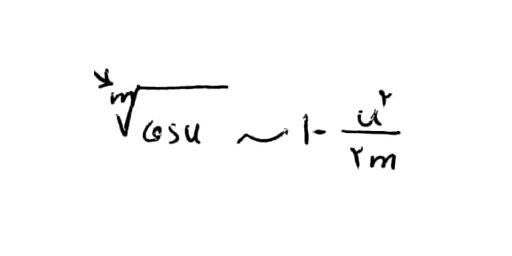 $\sqrt[m]{\cos u} \sim 1 - \frac{u^۲}{۲m}$